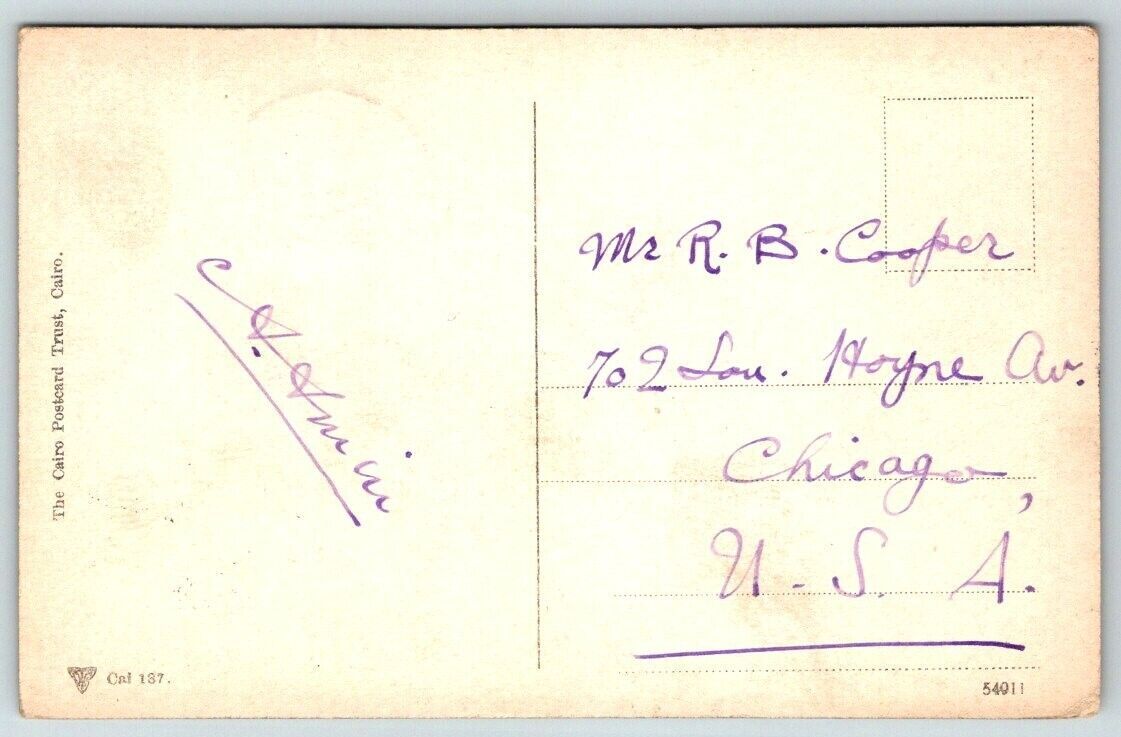 The Cairo Postcard Trust, Cairo.
Mr R. B. Cooper
702 Sou. Hoyne Av.
Chicago,
U-S. A.
Cai 137.
54011